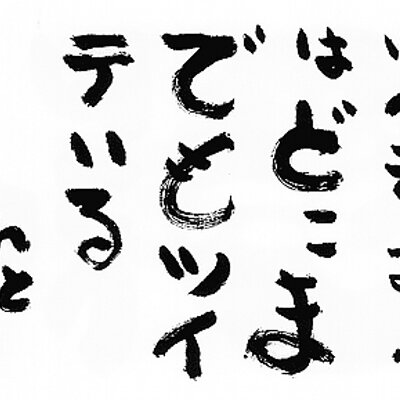 はどこま
でもツイ
テいる
と